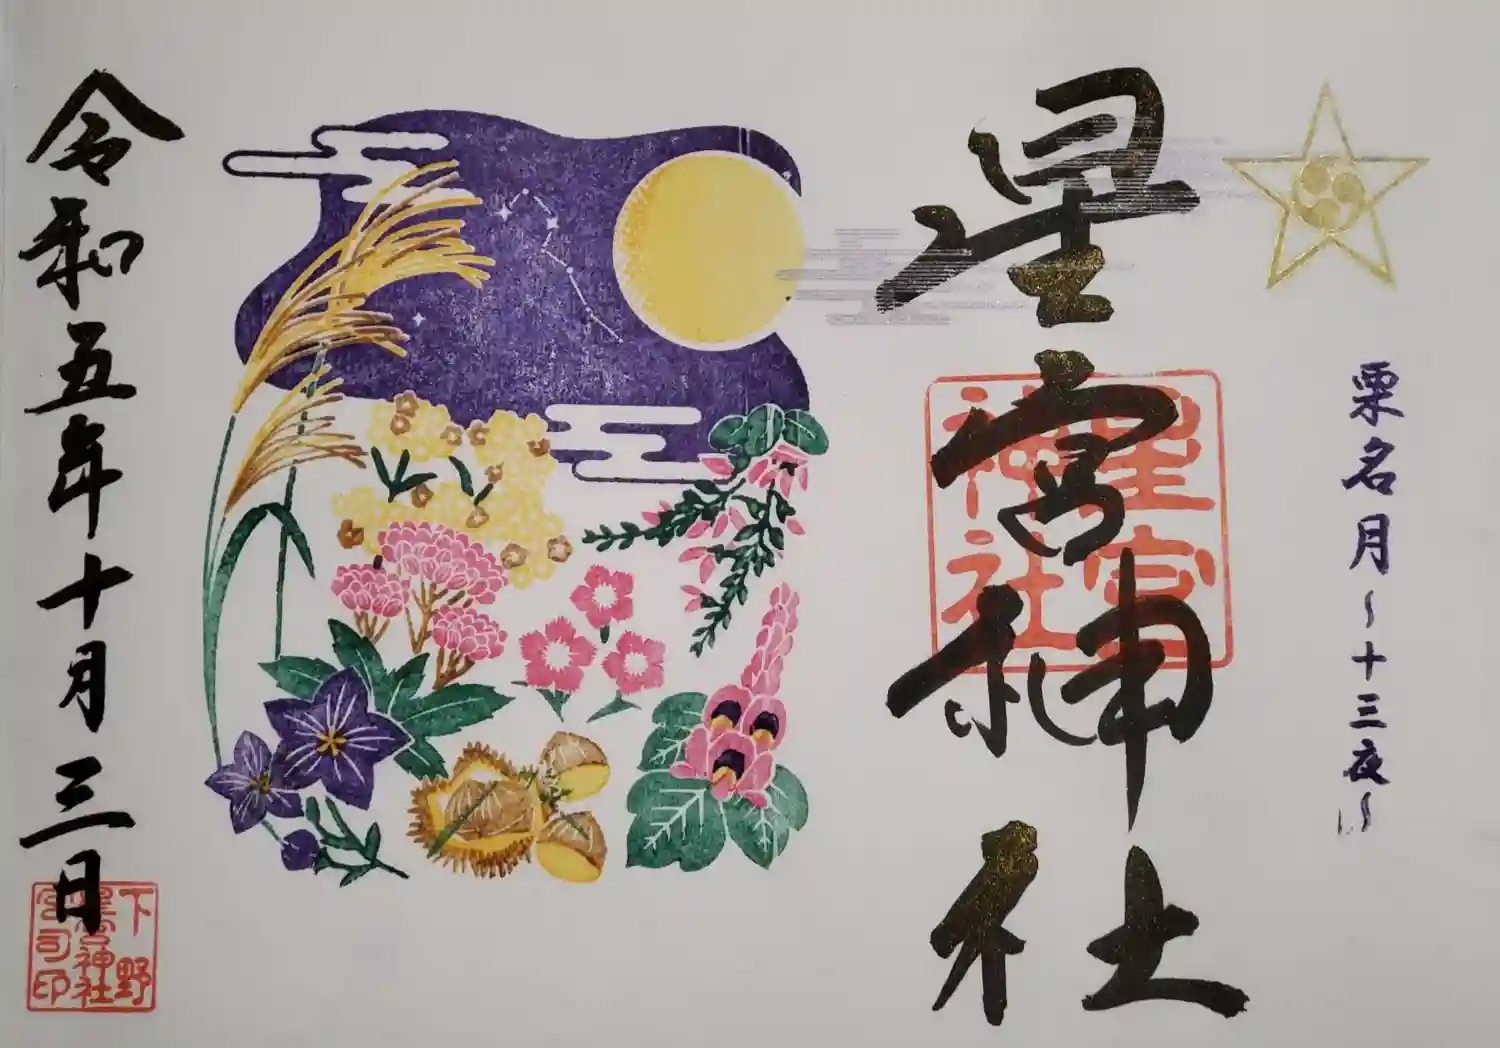 栗名月～十三夜～
星宮神社
星宮
神社
令和五年十月三日
下野
星宮神社
宮司印